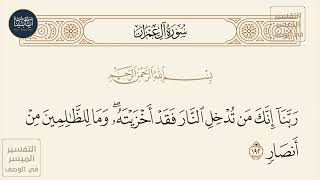 سُورَةُ آلِ عِمْرَان
بِسْمِ اللَّهِ الرَّحْمَٰنِ الرَّحِيمِ
رَبَّنَآ إِنَّكَ مَن تُدْخِلِ ٱلنَّارَ فَقَدْ أَخْزَيْتَهُۥۖ وَمَا لِلظَّٰلِمِينَ مِنْ
أَنصَارٖ ١٩٢
التفسير
الميسر
في الوصف